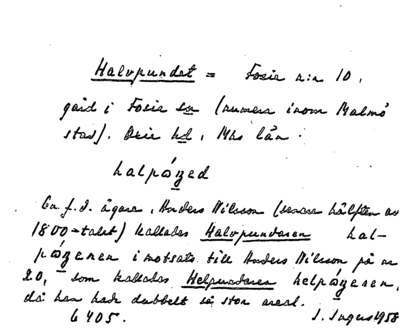 Halvpundet = Fosie n:r 10,
gård i Fosie sn (numera inom Malmö
stad). Oxie hd, Mhs län.
halpo̲ŋed
En f.d. ägare, Anders Nilsson (senare hälften av
1800-talet) kallades Halvpundaren hal-
pøŋenen i motsats till Anders Nilsson på nr
20, som kallades Helpundaren helpøŋaren,
då han hade dubbelt så stor areal.
G 405. J. Ingers 1958